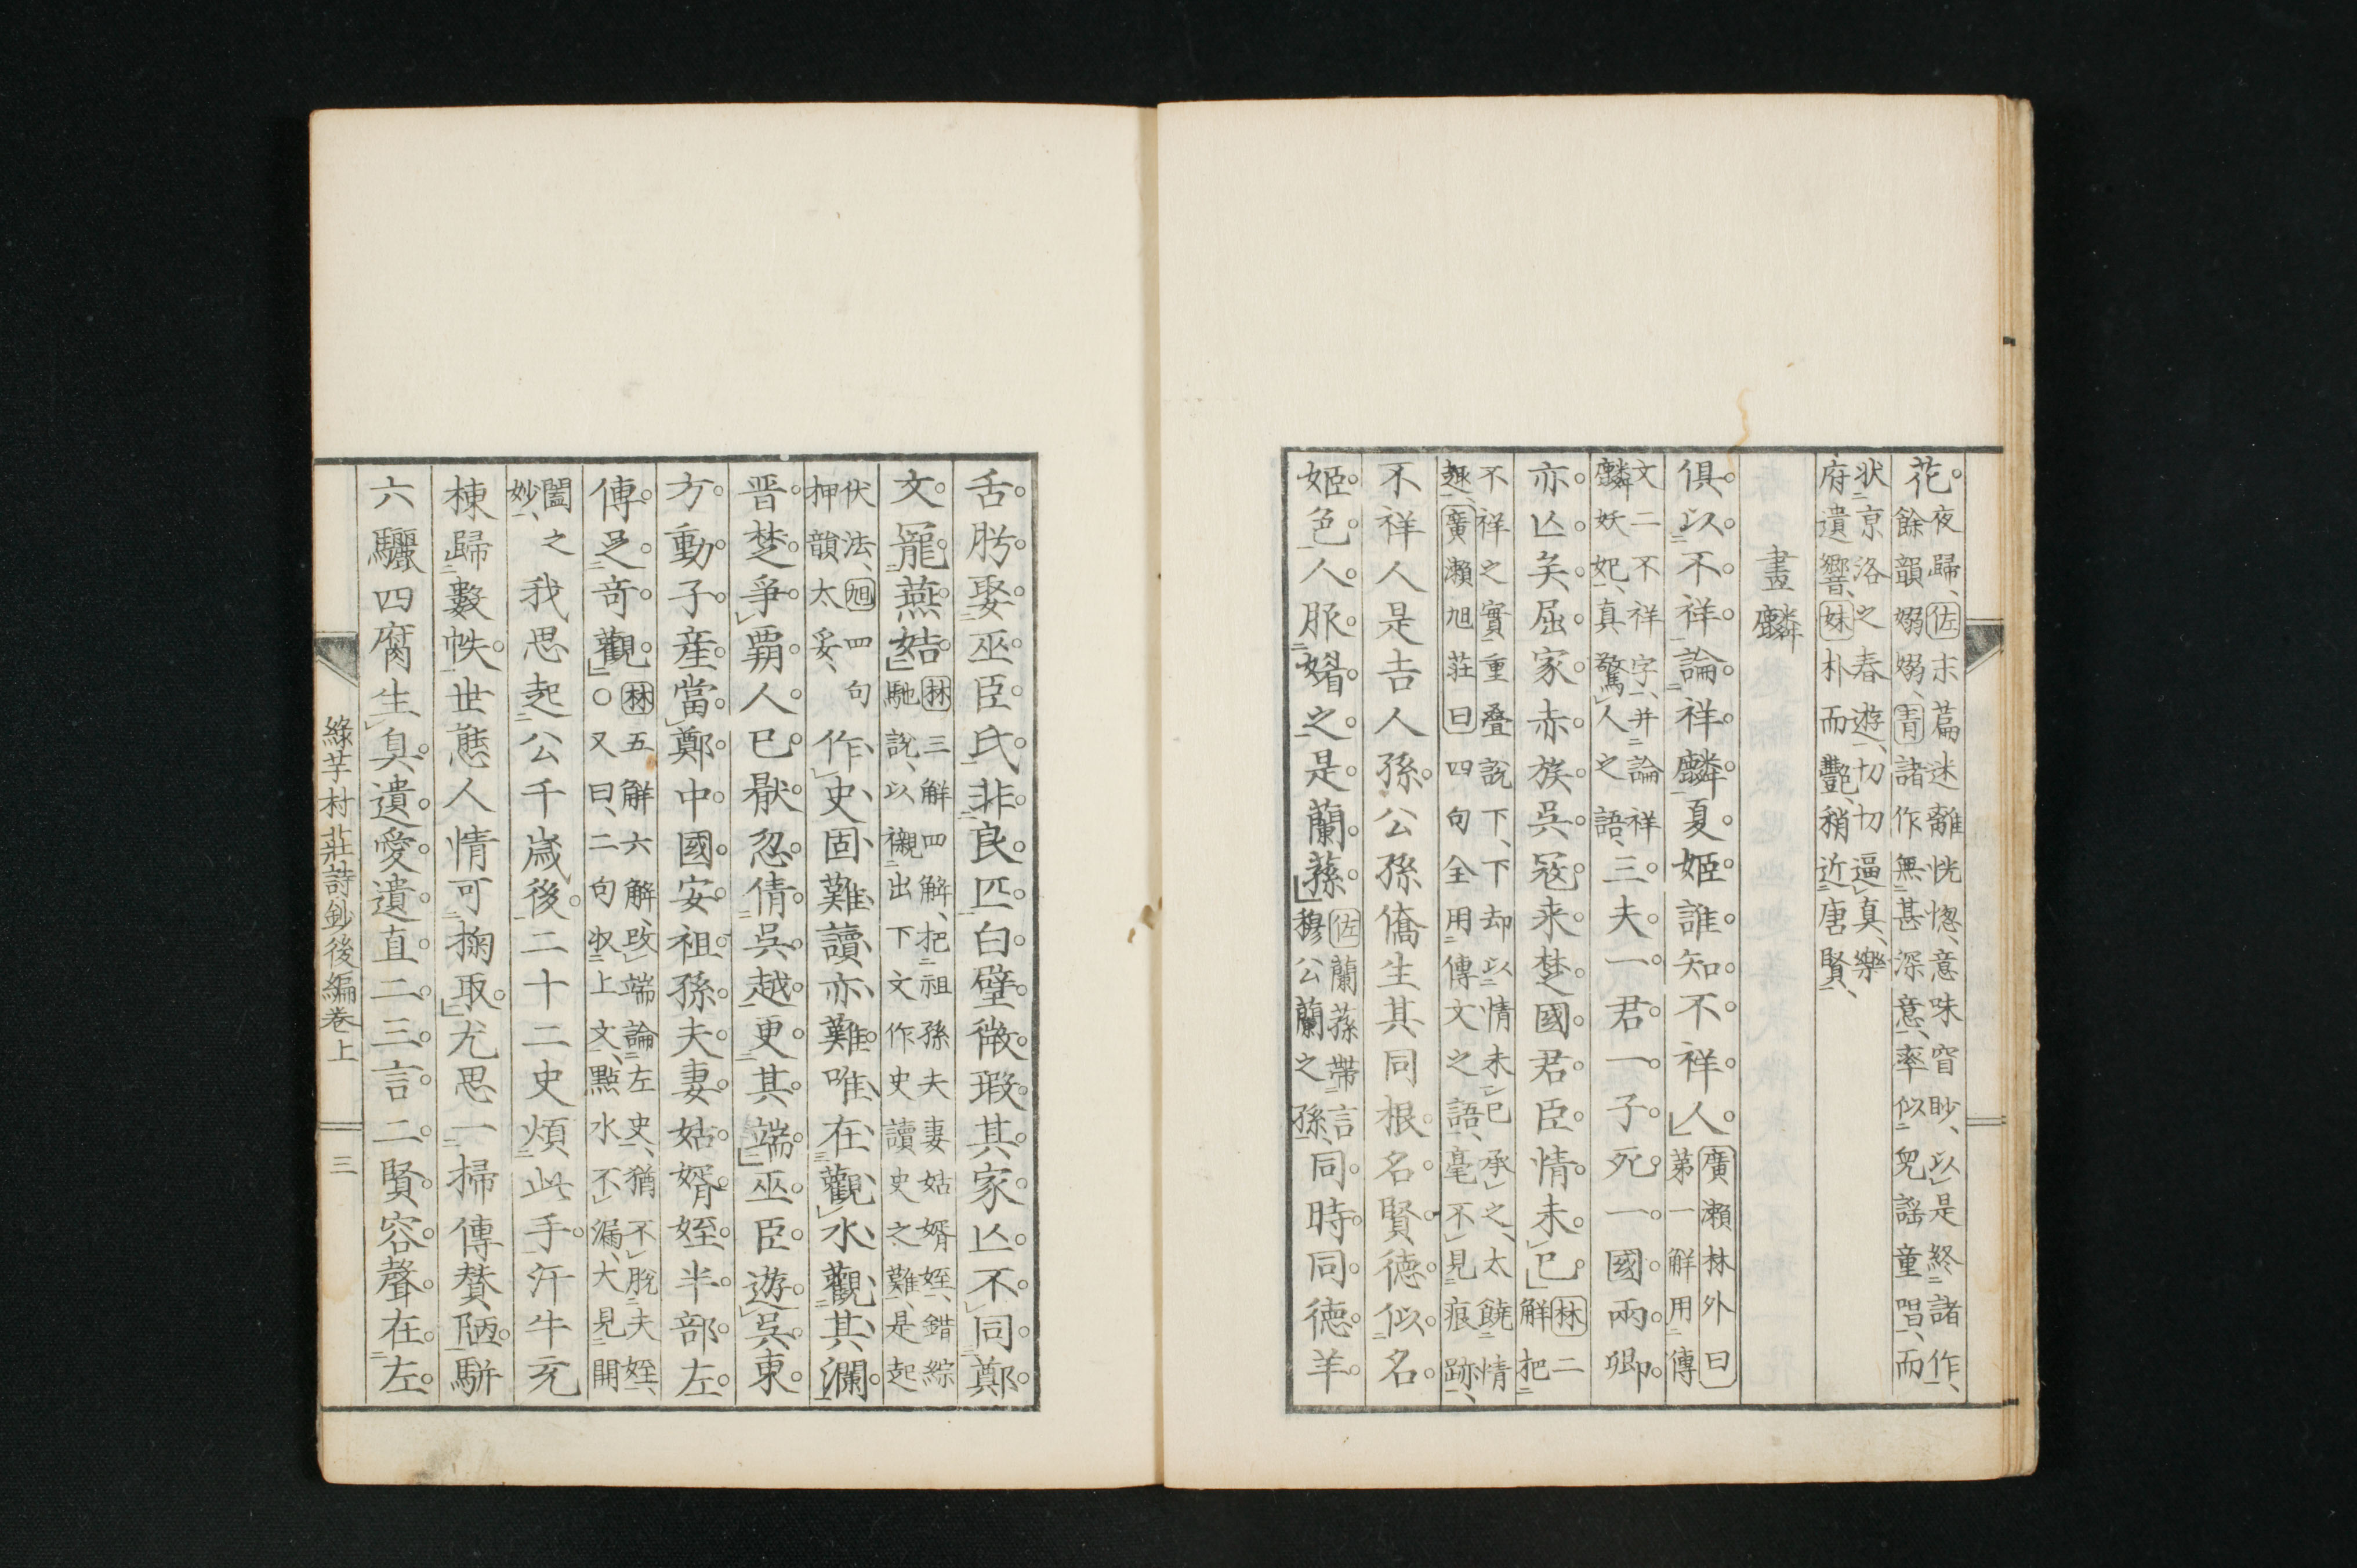 花。夜歸、佐末篇迷離恍惚、意味窅眇、以是終諸作、
餘韻嫋嫋、青諸作無甚深意、率似兒謡童唱、而
状京洛之春遊、切切逼真、樂
府遺響、妹朴而艷、稍近唐賢、
畫麟
俱。以。不。祥。論。祥。麟。夏。姬。誰。知。不。祥。人。廣瀬林外曰
第一解用傳
文二不祥字、并論祥
麟妖妃、真驚人之語、三。夫。一。君。一。子。死。一。國。兩。卿。
亦。亾。矣。屈。家。赤。族。呉。冦。来。楚。國。君。臣。情。未。已。林二
解把
不祥之實重叠説下、下却以情未已承之、太饒情
趣、廣瀬旭荘曰四句全用傳文之語、毫不見痕跡、
不祥人是吉人孫。公孫僑生其同根。名。賢。德。似。名。
姬。色。人。服。媚。之。是。蘭。蓀。佐蘭蓀帶言
穆公蘭之孫、同。時。同。德。羊。
舌。肸。娶。巫。臣。氏。非。良。匹。白。璧。微。瑕。其。家。亾。不。同。鄭。
文。寵。燕。姞。林三解四解、把祖孫夫妻姑婿姪、錯綜
馳説、以襯出下文作史讀史之難、是起
伏法、旭四句
押韻太妥、作、史、固、難、讀、亦、難、唯、在、觀、水、觀、其、瀾。
晋。楚。爭。覇。人。已。厭。忽。倩。呉。越。更。其。端。巫。臣。遊。呉。東。
方。動。子。産。當。鄭。中。國。安。祖。孫。夫。妻。姑。婿。姪。半。部。左。
傳。足。奇。觀。林五解六解、改端論左史、猶不脱夫姪、
○又曰、二句収上文、點水不漏、大見開
闔之
妙、我思起公千歳後。二十二史煩此手。汗牛充
棟歸數帙。世態人情可掬取。尤思一掃傳賛陋。駢
六驪四腐生臭。遺。愛。遺。直。二。三。言。二。賢。容。聲。在。左。
綠芋村莊詩鈔後編卷上　三